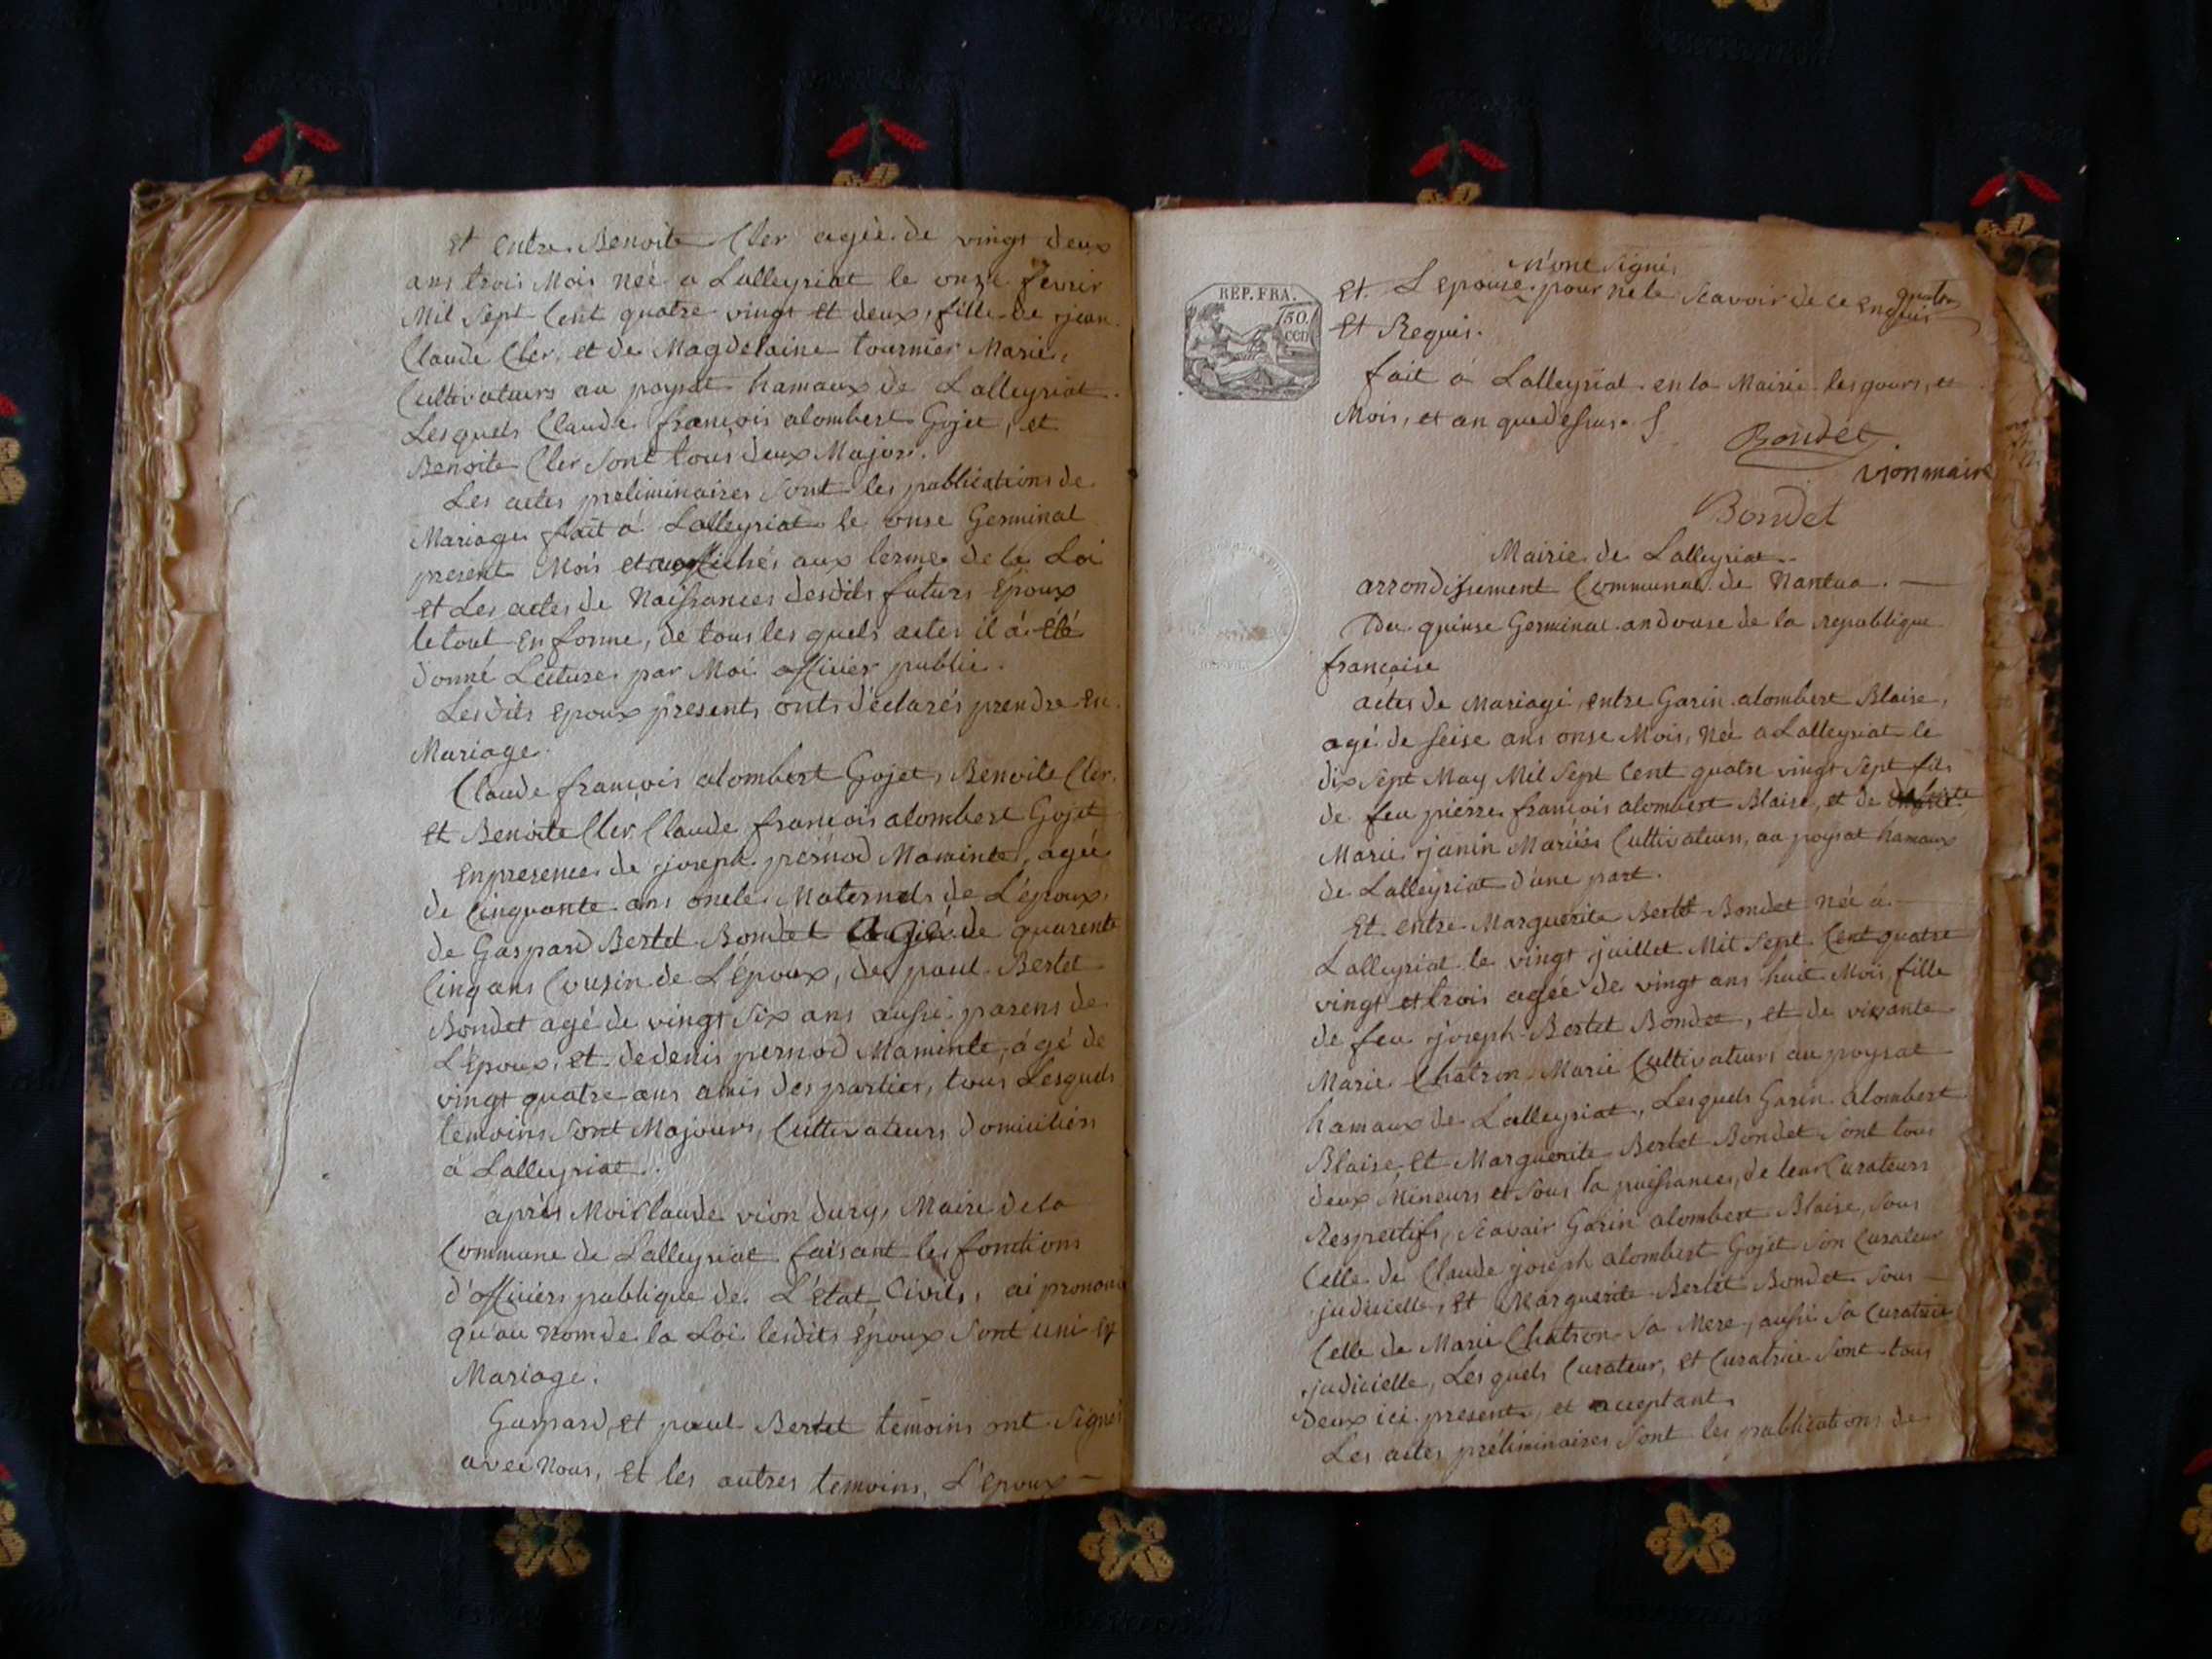 et Entre Benoite Cler agée de vingt deux
ans trois Mois Neé a Lalleyriat le onze fevrir
Mil Sept Cent quatre vingt et deux, fille de jean
Claude Cler, et de Magdelaine tournier Mariés
Cultivateurs au poysat hamaux de Lalleyriat.
Lesquels Claude françois alombert Gojet, et
Benoite Cler Sont tous deux Majors.
Les actes preliminaires Sont les publications de
Mariage fait á Lalleyriat le onse Germinal
present Mois et affichés aux terme de la Loi
et Les actes de Naissances desdits futurs Epoux
le tout en forme, de tous les quels actes il á été
donné Lecture par Moi officier public.
Lesdits Epoux present, onts déclarés prendre en
Mariage.
Claude françois alombert Gojet, Benoite Cler,
et Benoite Cler, Claude francois alombert Gojet
En presence de joseph pernod Maminte, agée
de Cinquante ans oncle Maternels de L'époux,
de Gaspard Bertet Bondet agé de quarente
Cinq ans Cousin de L'époux, de paul Bertet
Bondet agé de vingt Six ans aussi parens de
L'Epoux, et de denis pernod Maminte, ágé de
vingt quatre ans amis des parties, tous Lesquels
temoins Sont Majours, Cultivateurs domiciliés
á Lalleyriat.
aprés Moi Claude vion dury, Maire de la
Commune de Lalleyriat faisant les fonctions
d'officiers publique de L'état Civils, ai prononcé
qu'au Nom de la Loi lesdits Epoux Sont uni en
Mariage.
Gaspard, et paul Bertet témoins ont Signés
avec Nous, et les autres temoins, L'Epoux
n'ont Signé,
REP. FRA.
50.
cen
Et L'Epouse pour ne le Scavoir de ce Enquis
Et Requis.
fait á Lalleyriat en la Mairie les jours, et
Mois, et an que dessus.
Bondet
vion maire
Bondet
Mairie de Lalleyriat
arrondissement Communal de Nantua.
Du quinse Germinal an douse de la Republique
francaise
actes de Mariage, entre Garin alombert Blaise,
agé de seise ans onse Mois, Née a Lalleyriat le
dix Sept May Mil Sept Cent quatre vingt Sept fils
de feu pierre françois alombert Blaise, et de
Marie janin Mariés Cultivateurs, au poysat hamaux
de Lalleyriat d'une part.
Et entre Marguerite Bertet Bondet Née á
Lalleyriat le vingt juillet Mil Sept Cent quatre
vingt et trois agée de vingt ans huit Mois, fille
de feu joseph Bertet Bondet, et de vivante
Marie Chatron Marié Cultivateurs au poysat
hamaux de Lalleyriat, Lesquels Garin alombert
Blaise, et Marguerite Bertet Bondet Sont tous
deux Mineurs et Sous la puissances, de leur Curateurs
Respectifs, Scavoir Garin alombert Blaise, Sous
Celle de Claude joseph alombert Gojet Son Curateur
judicielle, et Marguerite Bertet Bondet Sous
Celle de Marie Chatron Sa Mere, aussi Sa Curatrice
judicielle, Lesquels Curateur, et Curatrice Sont tous
deux ici present, et acceptant
Les actes préliminaires Sont les publications de